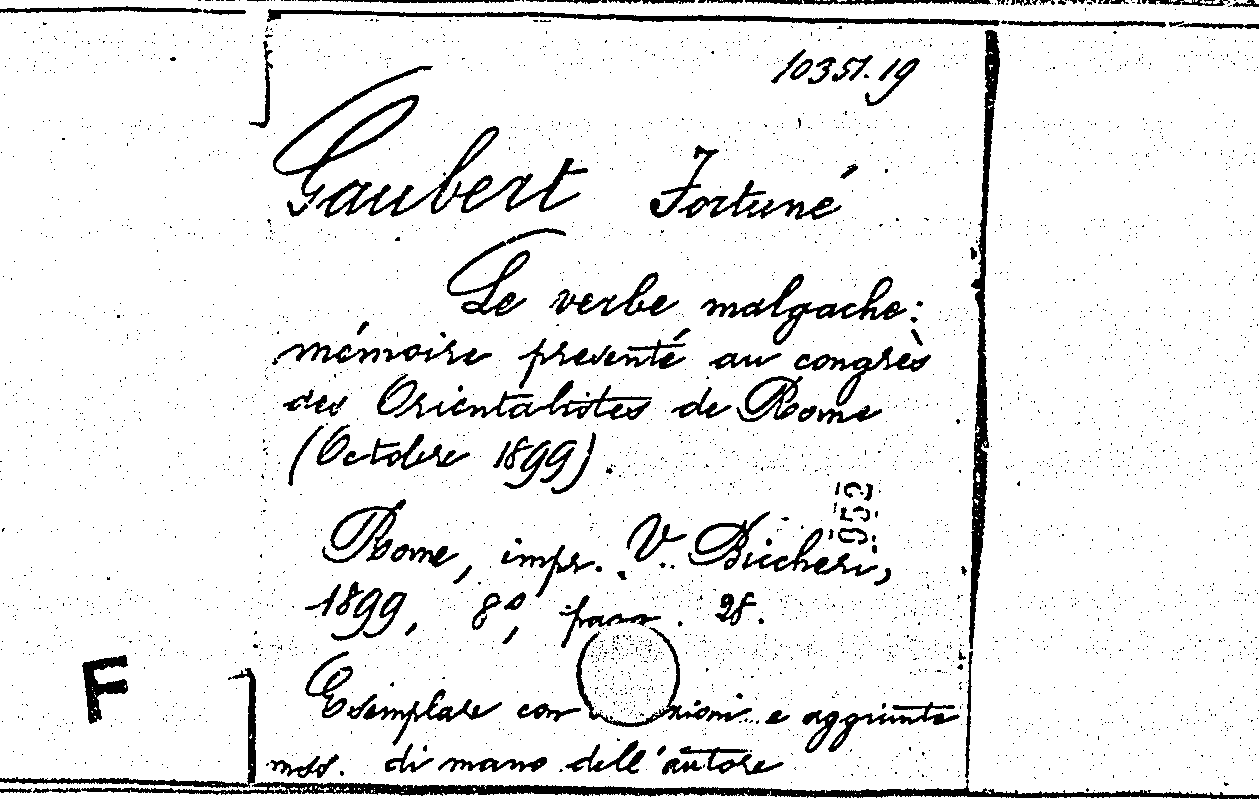 10351.19
Gaubert Fortuné
Le verbe malgache:
mémoire presenté au congrès
des Orientalistes de Rome
(Octobre 1899).
952
Rome, impr. V. Biccheri,
1899, 8°, pagg. 28.
F
Esemplare con e aggiunte
mss. di mano dell'autore